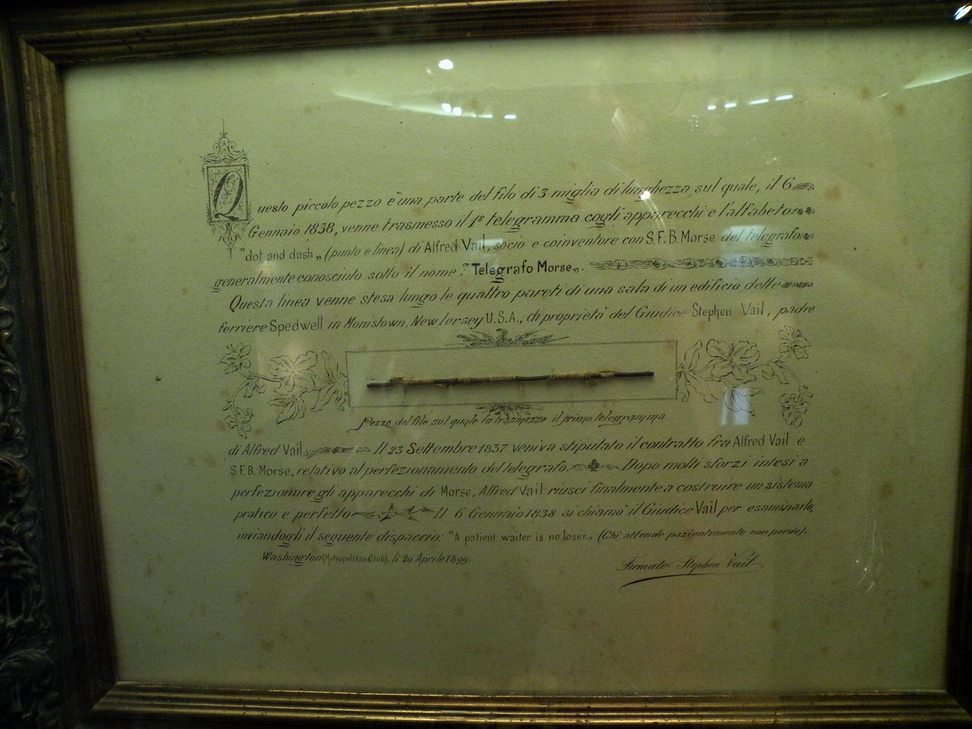 Questo piccolo pezzo è una parte del filo di 3 miglia di lunghezza sul quale, il 6
Gennaio 1838, venne trasmesso il 1º telegramma cogli apparecchi e l'alfabeto
"dot and dash„ (punto e linea) di Alfred Vail, socio e coinventore con S.F.B. Morse del telegrafo
generalmente conosciuto sotto il nome: "Telegrafo Morse„.
Questa linea venne stesa lungo le quattro pareti di una sala di un edificio delle
ferriere Spedwell in Morristown, New Jersey U.S.A., di proprietà del Giudice Stephen Vail, padre
Pezzo del filo sul quale fu trasmesso il primo telegramma
di Alfred Vail Il 23 Settembre 1837 veniva stipulato il contratto fra Alfred Vail e
S.F.B. Morse, relativo al perfezionamento del telegrafo. Dopo molti sforzi intesi a
perfezionare gli apparecchi di Morse, Alfred Vail riuscì finalmente a costruire un sistema
pratico e perfetto Il 6 Gennaio 1838 si chiamò il Giudice Vail per esaminarlo,
inviandogli il seguente dispaccio: "A patient waiter is no loser„ (Chi attende pazientemente non perde).
Washington (Metropolitan Club), li 20 Aprile 1899.
Firmato Stephen Vail